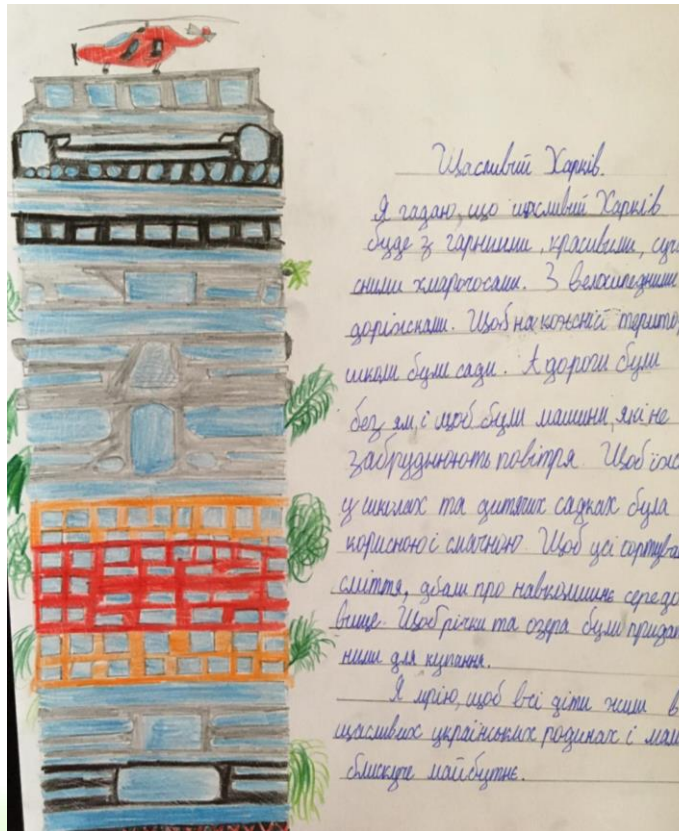 Щасливий Харків.
Я гадаю, що щасливий Харків
буде з гарними, красивими, суча
сними хмарочосами. З велосипедними
доріжками. Щоб на кожній територ
школи були сади. А дороги були
без ям, і щоб були машини, які не
забруднюють повітря. Щоб їжа
у школах та дитячих садках була
корисною і смачною. Щоб усі сортува
сміття, дбали про навколишнє середо
вище. Щоб річки та озера були придат
ними для купання.
Я мрію, щоб всі діти жили в
щасливих українських родинах і мали
блискуче майбутнє.